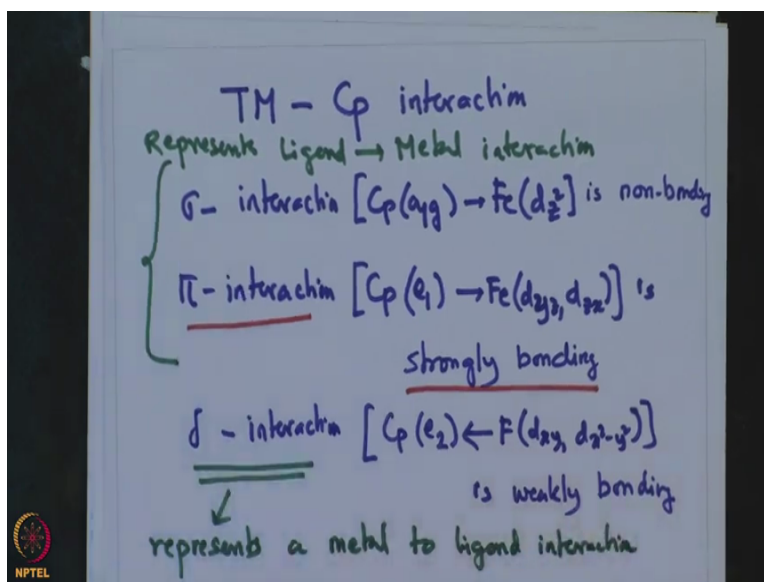 TM - Cp interaction
Represents Ligand → Metal interaction
σ- interaction [Cp(a1g) → Fe(dz²] is non-bonding
π-interaction [Cp(e1) → Fe(dyz, dzx)] is
strongly bonding
δ - interaction [Cp(e2) ← F(dxy, dx²-y²)]
is weakly bonding
represents a metal to ligand interaction
NPTEL